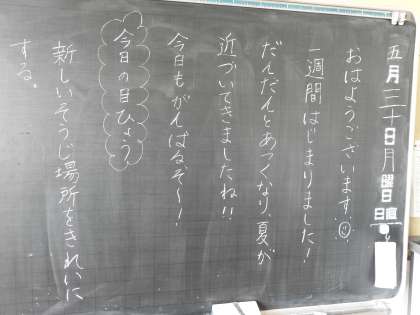 五月三十日月曜日
日直
おはようございます
一週間はじまりました！
だんだんとあつくなり、夏が
近づいてきましたね!!
今日もがんばるぞ〜！
今日の目ひょう
新しいそうじ場所をきれいに
する。